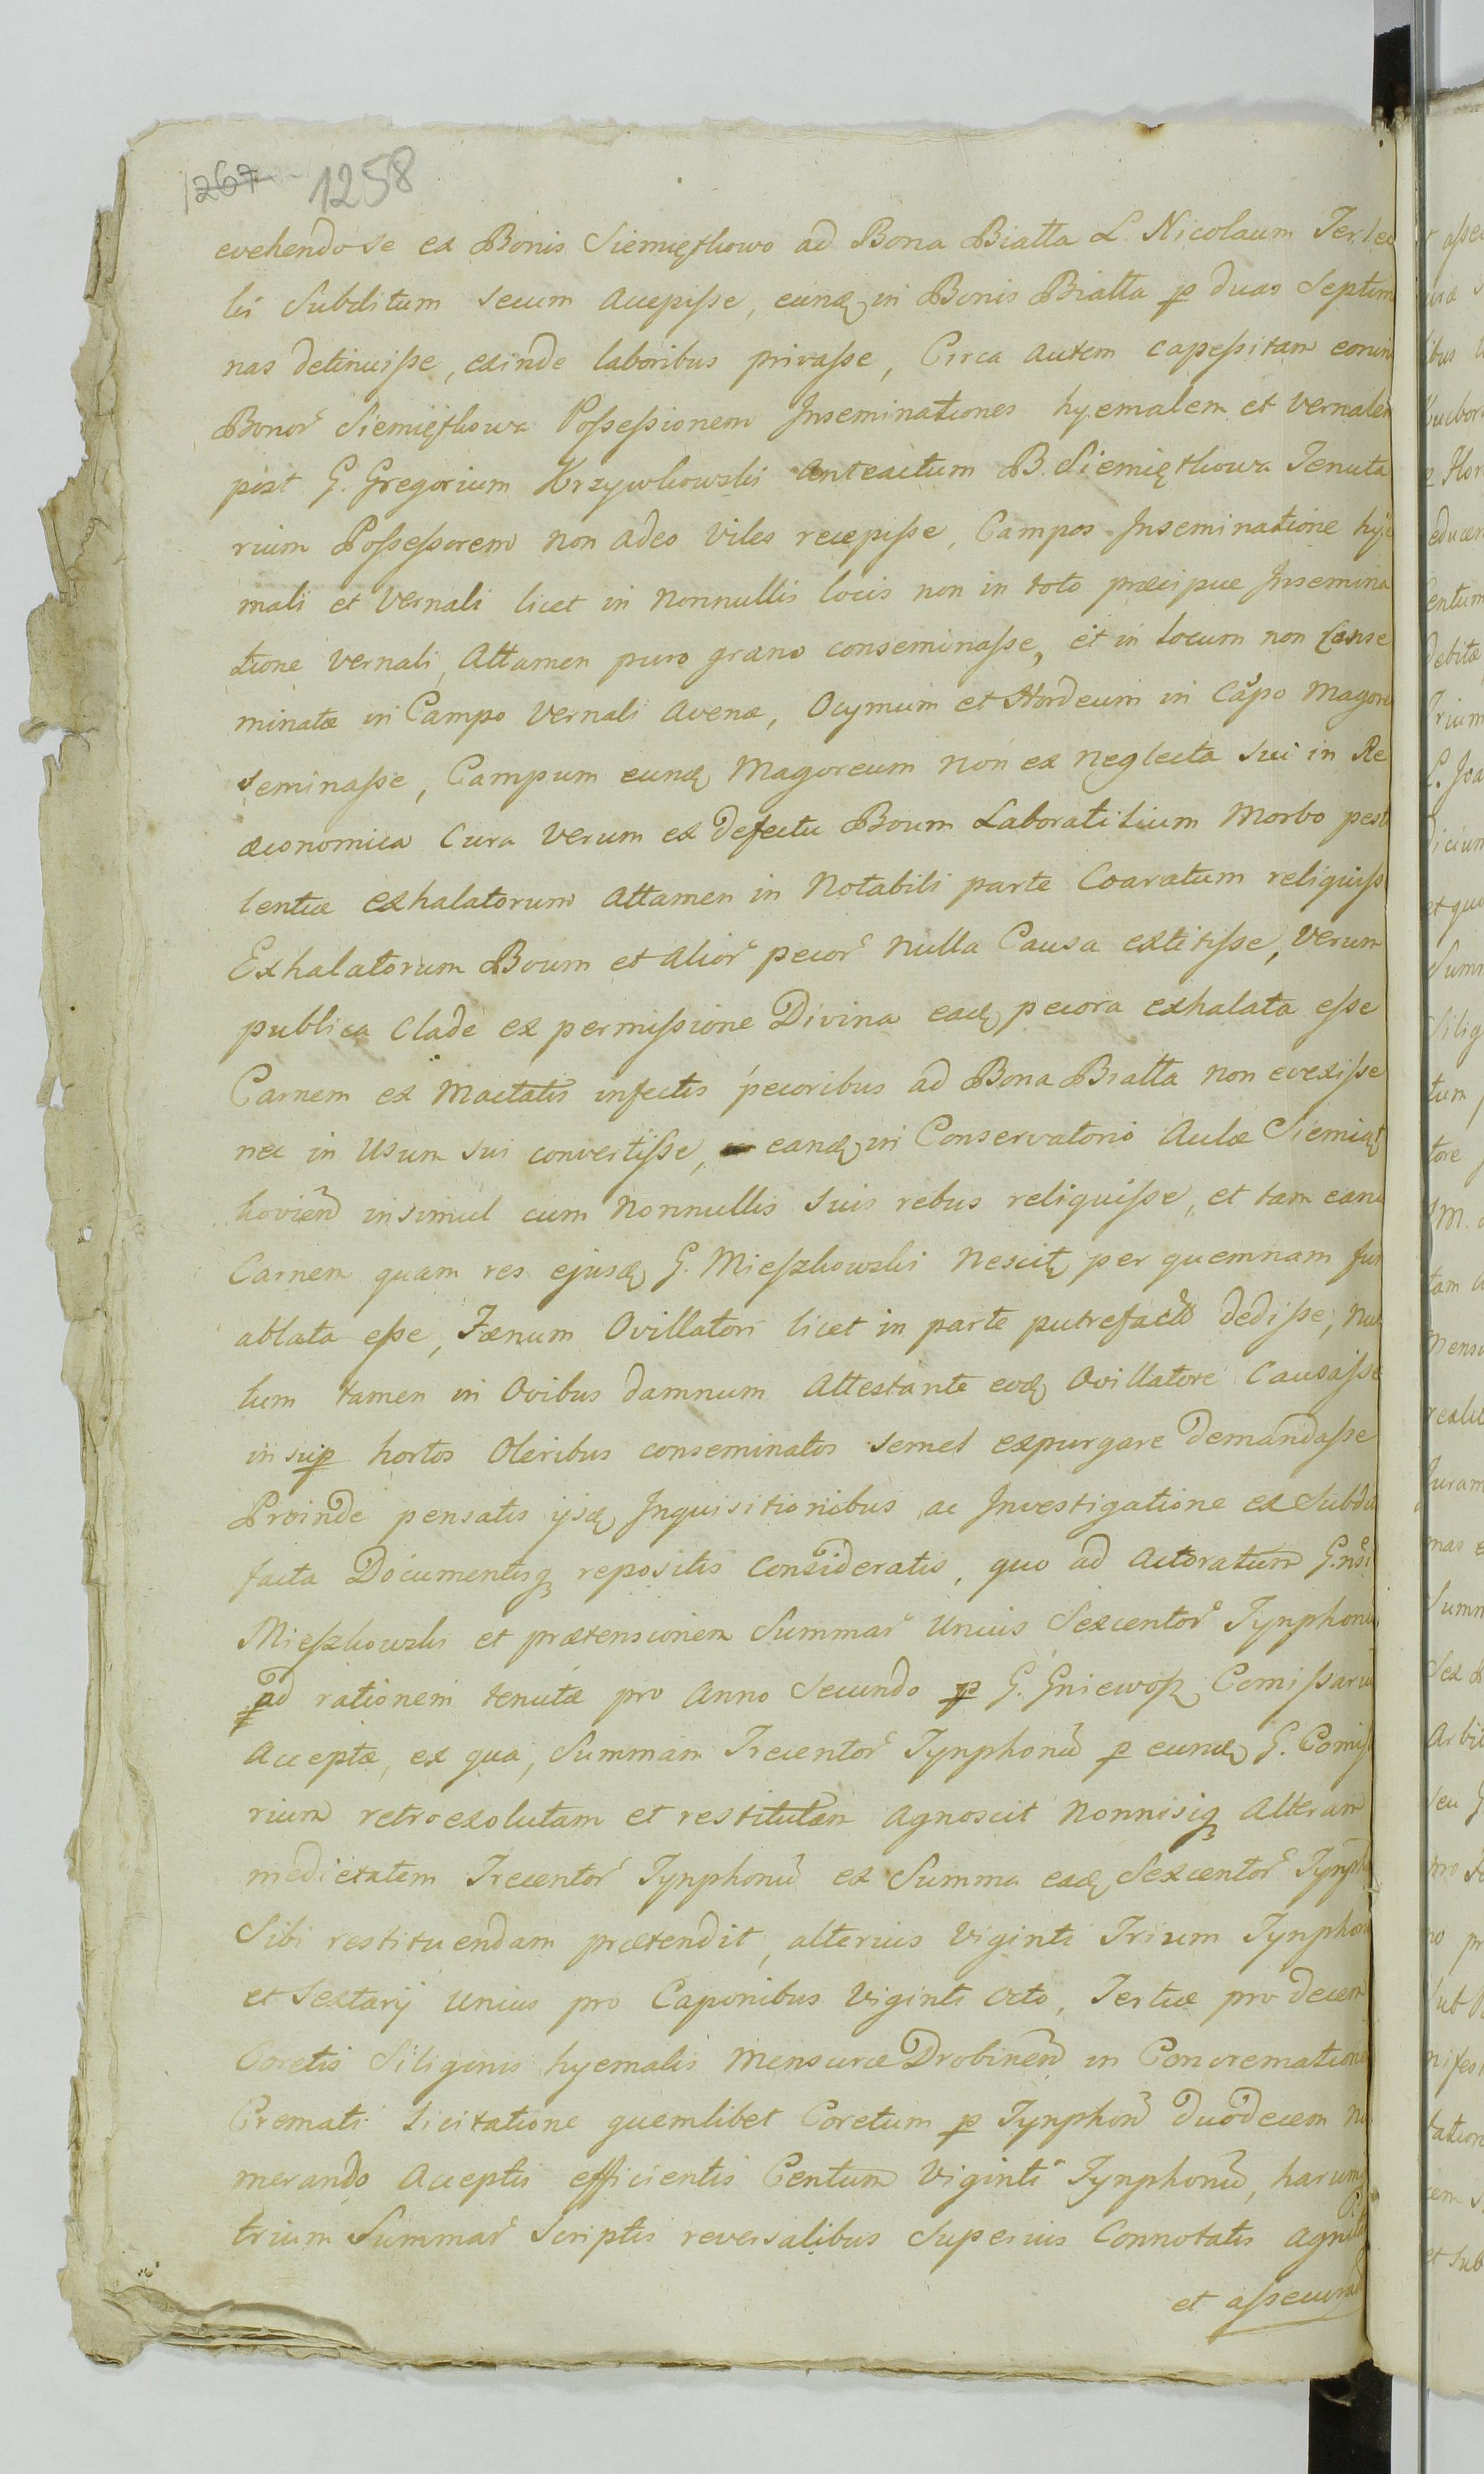 1267 1258
evehendo se ex Bonis Siemięthowo ad Bona Biatta L. Nicolaum Terlec
ki Subditum secum accepisse, eundę in Bonis Biatta p duas Septim
nas detinuisse, exinde laboribus privasse, Circa autem capessitam eorun
Bonor Siemięthowa Possessionem Inseminationes hyemalem et vernalem
post G. Gregorium Krzywkowski Anteactum B. Siemięthowa Tenuta
rium Possessorem non adeo viles recepisse, Campos Inseminatione hye
mali et Vernali licet in Nonnullis locis non in toto præcipue Insemina
tione vernali, Attamen puro grano conseminasse, et in locum non Conse
minatæ in Campo Vernali Avenæ, Ocymum et Hordeum in Cãpo Magore
seminasse, Campum eundę Magoreum non ex neglecta sui in Re
œconomica Cura Verum ex Defectu Boum Laboratitium Morbo pesti
lentiæ exhalatorum Attamen in Notabili parte Coaratum reliquisse
Exhalatorum Boum et alior pecor nulla Causa extitisse, Verum
publica Clade ex permissione Divina eadę pecora exhalata esse
Carnem ex Mactatis infectis pecoribus ad Bona Biatta non evexisse
nec in Usum sui convertisse, eandę in Conservatorio Aulæ Siemięt
hovien̄ insimul cum Nonnullis suis rebus reliquisse, et tam eand
Carnem quam res ejusdę G. Mieszkowski Nescitę per quemnam fur
ablata esse, Fænum Ovillatori licet in parte putrefacto dedisse, nul
lum tamen in Ovibus damnum Attestante eodę Ovillatore Causasse
insup hortos Oleribus conseminatos semel expurgare demandasse
Proinde pensatis ijsdę Inquisitionibus ac Investigatione ex Subdit
facta Documentisq repositis Consideratis, quo ad Actoratum G.nsi
Mieszkowski et prætensionem Summar Unius Sexcentor Tynphonu
ad rationem tenutæ pro Anno Secundo p G. Gniewosz Comissariu
Acceptæ, ex qua, Summam Trecentor Tynphonū p eundę G. Comissa
rium retroexolutam et restitutam Agnoscit Nonnisiq Alteram
medietatem Trecentor Tynphonū ex Summa eadę Sexcentor Tynpho
Sibi restituendam prætendit, alterius Viginti Trium Tynphonu
et Sextarij Unius pro Caponibus Viginti Octo, Tertiæ pro Decem
Coretis Siliginis hyemalis Mensuræ Drobinen̄ in Concrematione
Cremati Licitatione quemlibet Coretum p Tynphon Duodecem nu
merando Acceptis efficientis Centum Viginti Tynphonū, harumq
trium Summar Scriptis reversalibus Superius Connotatis agni
et assecurat